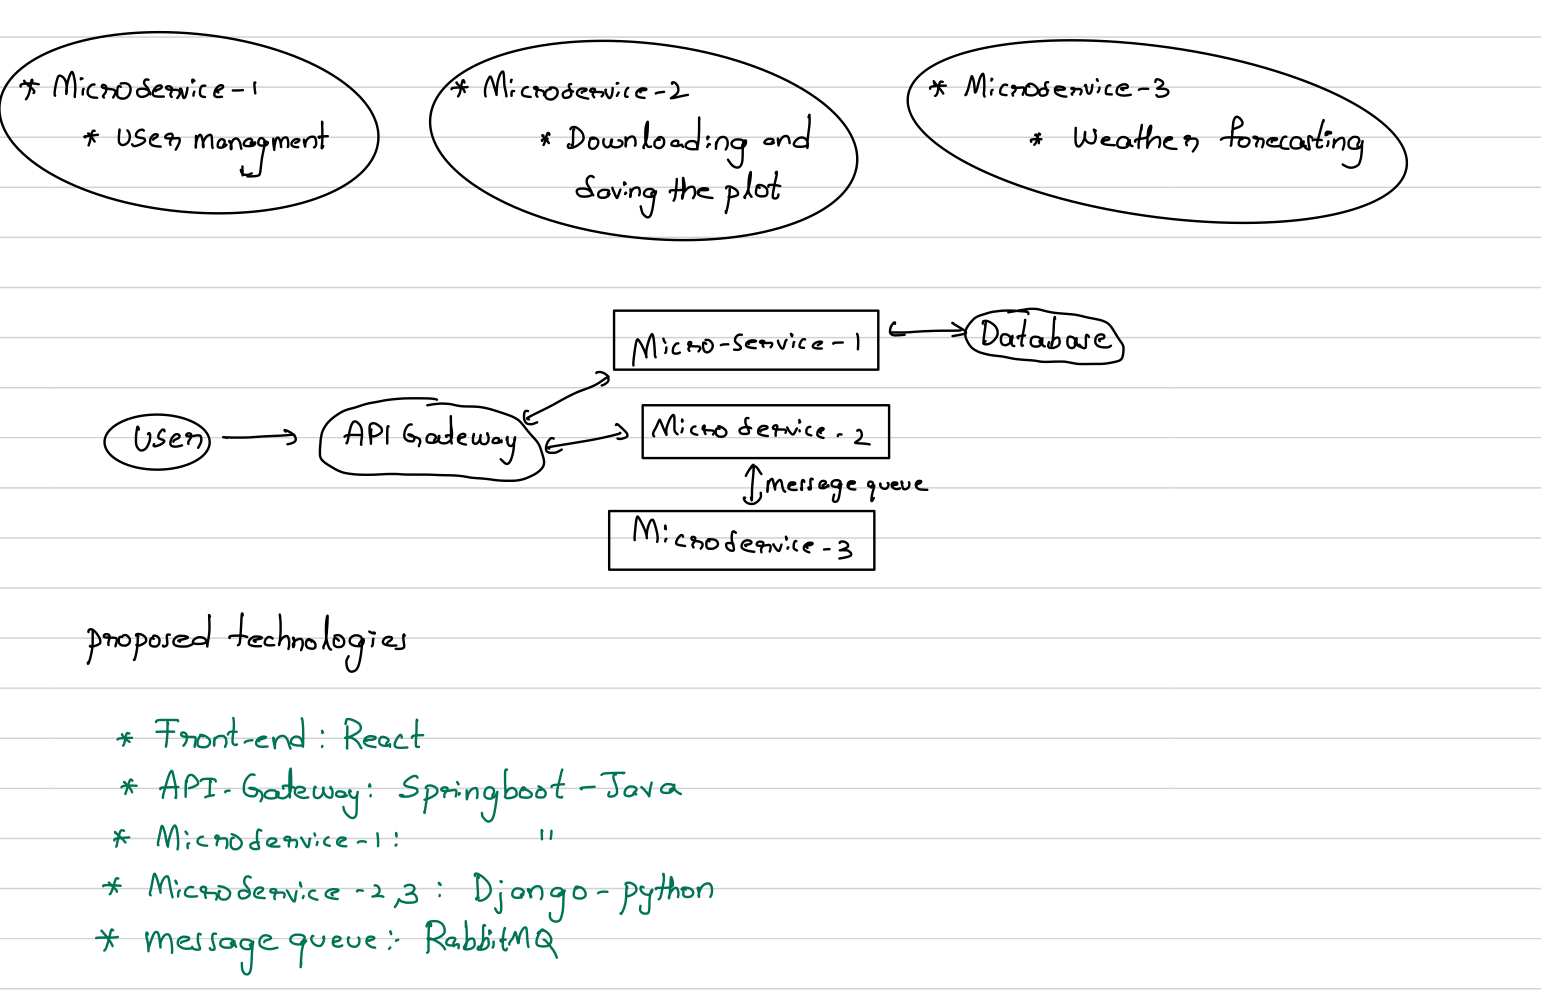 * Microservice-1
* User managment
* Microservice-2
* Downloading and
saving the plot
* Microservice-3
* Weather forecasting
Micro-service-1
Database
User
API Gateway
Microservice-2
message queue
Microservice-3
proposed technologies
* Front-end: React
* API-Gateway: Springboot-Java
* Microservice-1: "
* Microservice-2,3: Django-python
* message queue:- RabbitMQ